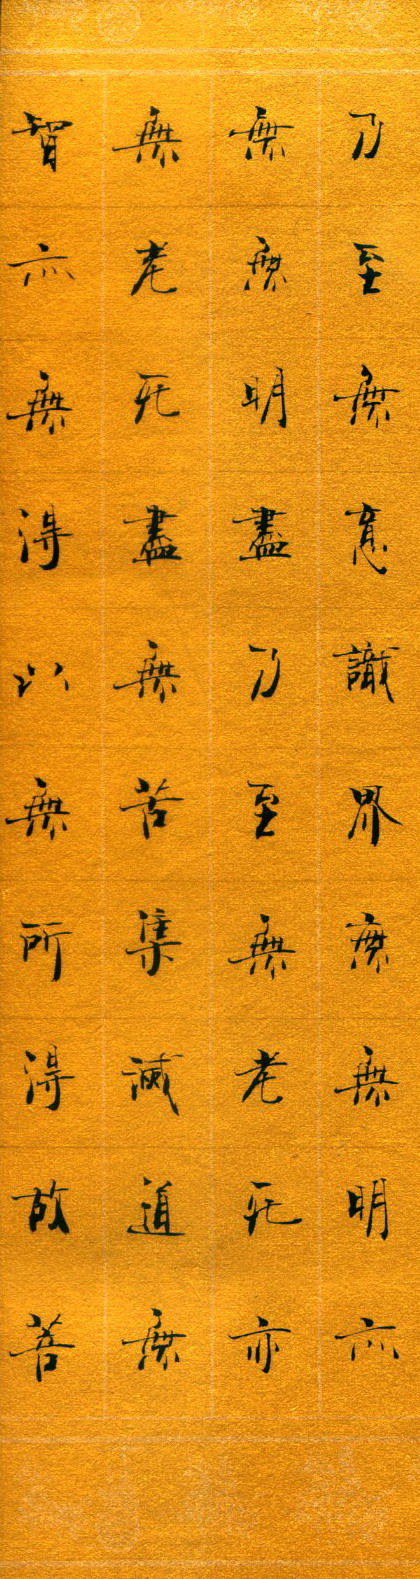 乃至無意識界無無明亦
無無明盡乃至無老死亦
無老死盡無苦集滅道無
智亦無得以無所得故菩